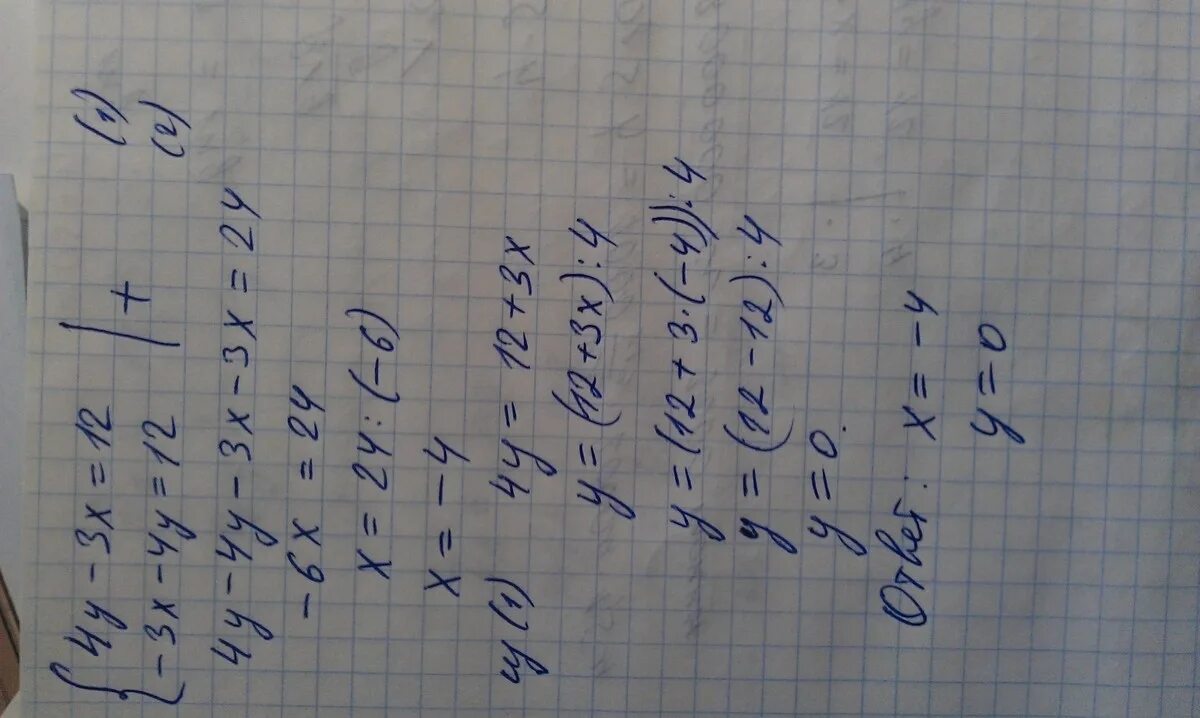 { 4y - 3x = 12 | + (1)
-3x - 4y = 12 (2)
4y - 4y - 3x - 3x = 24
-6x = 24
x = 24 : (-6)
x = -4
из (1) 4y = 12 + 3x
y = (12 + 3x) : 4
y = (12 + 3·(-4)) : 4
y = (12 - 12) : 4
y = 0.
Ответ: x = -4
y = 0